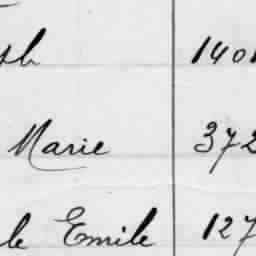 sh 1401
Marie 372
le Emile 127